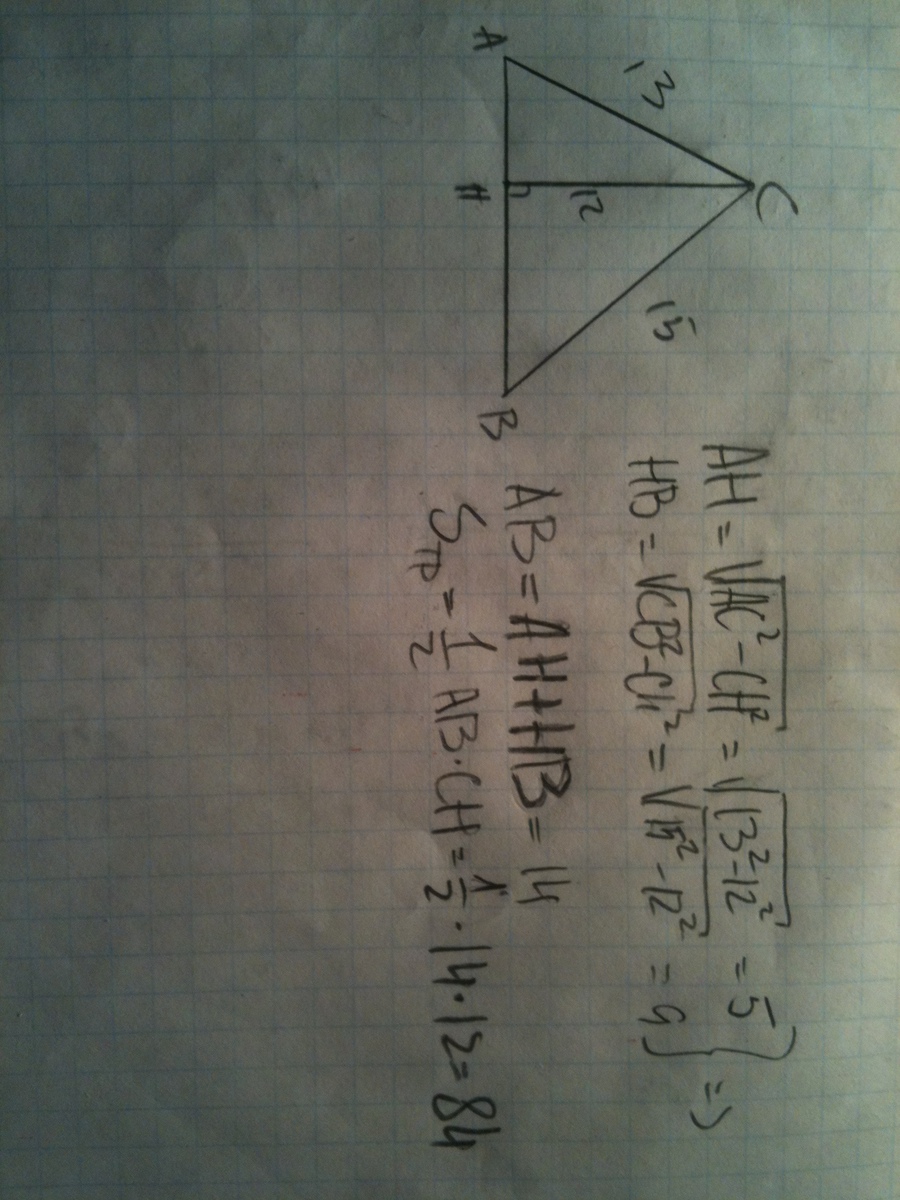 C
13
15
12
A
H
B
AH = √AC² - CH² = √13² - 12² = 5
HB = √CB² - CH² = √15² - 12² = 9 } =>
AB = AH + HB = 14
Sтр = 1/2 AB · CH = 1/2 · 14 · 12 = 84